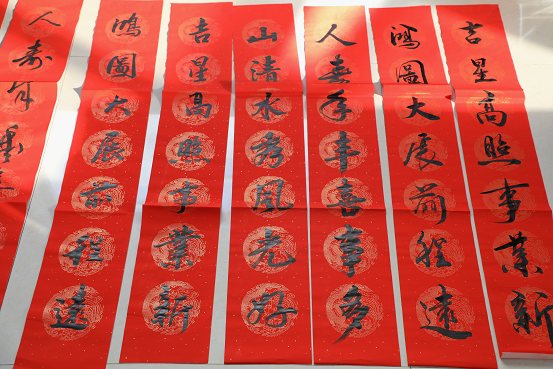 吉星高照事業新
鸿圖大展前程遠
人寿年丰喜事多
山清水秀风光好
吉星高照事業新
鸿圖大展前程遠
人寿年